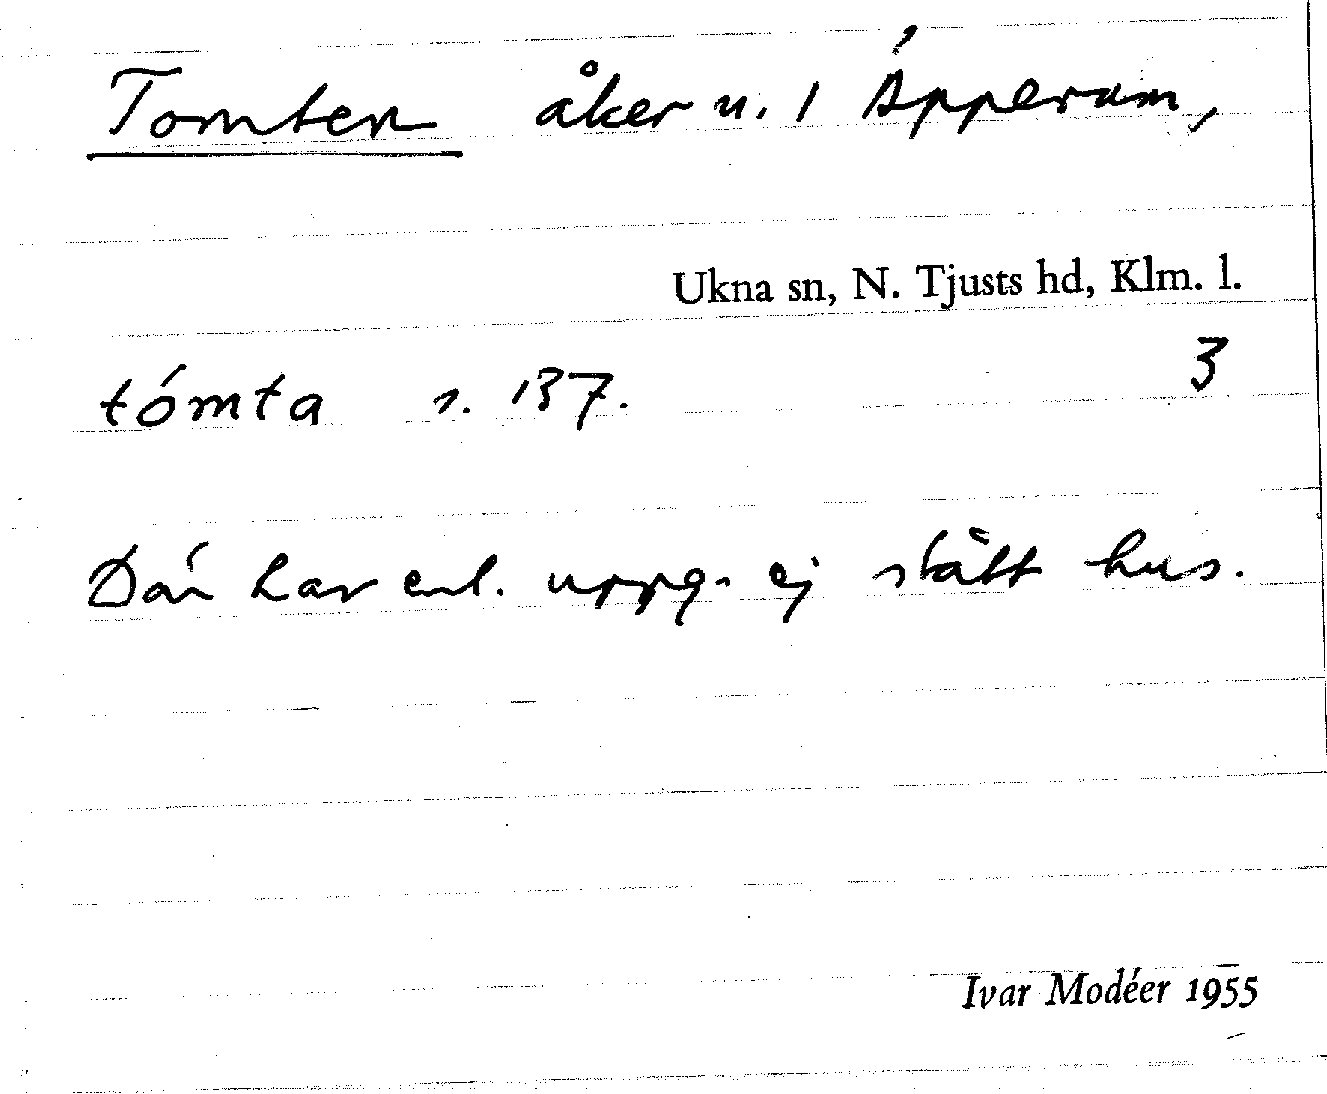 Tomten åker u. 1 Äpperum,
Ukna sn, N. Tjusts hd, Klm. l.
tómta s. 137. 3
Där har enl. uppg. ej stått hus.
Ivar Modéer 1955